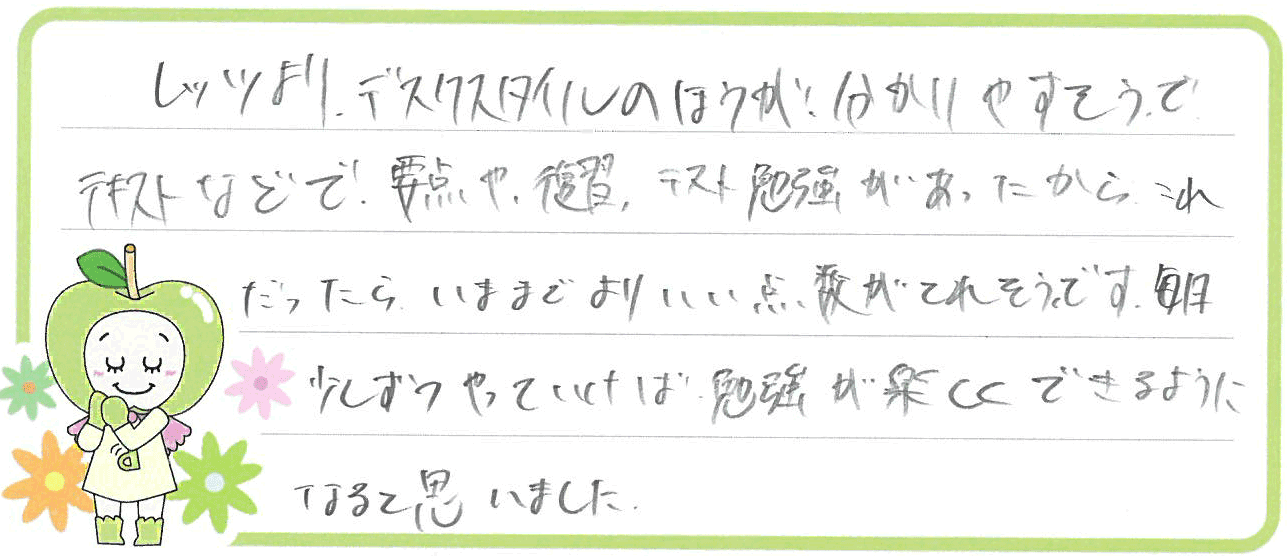 レッツより、デスクスタイルのほうが、分かりやすそうで
テキストなどで、要点や、復習、テスト勉強があったから、これ
だったら、いままでよりいい点数がてれそうです。毎日
少しずつやっていけば、勉強が楽しくできるように
なると思いました。